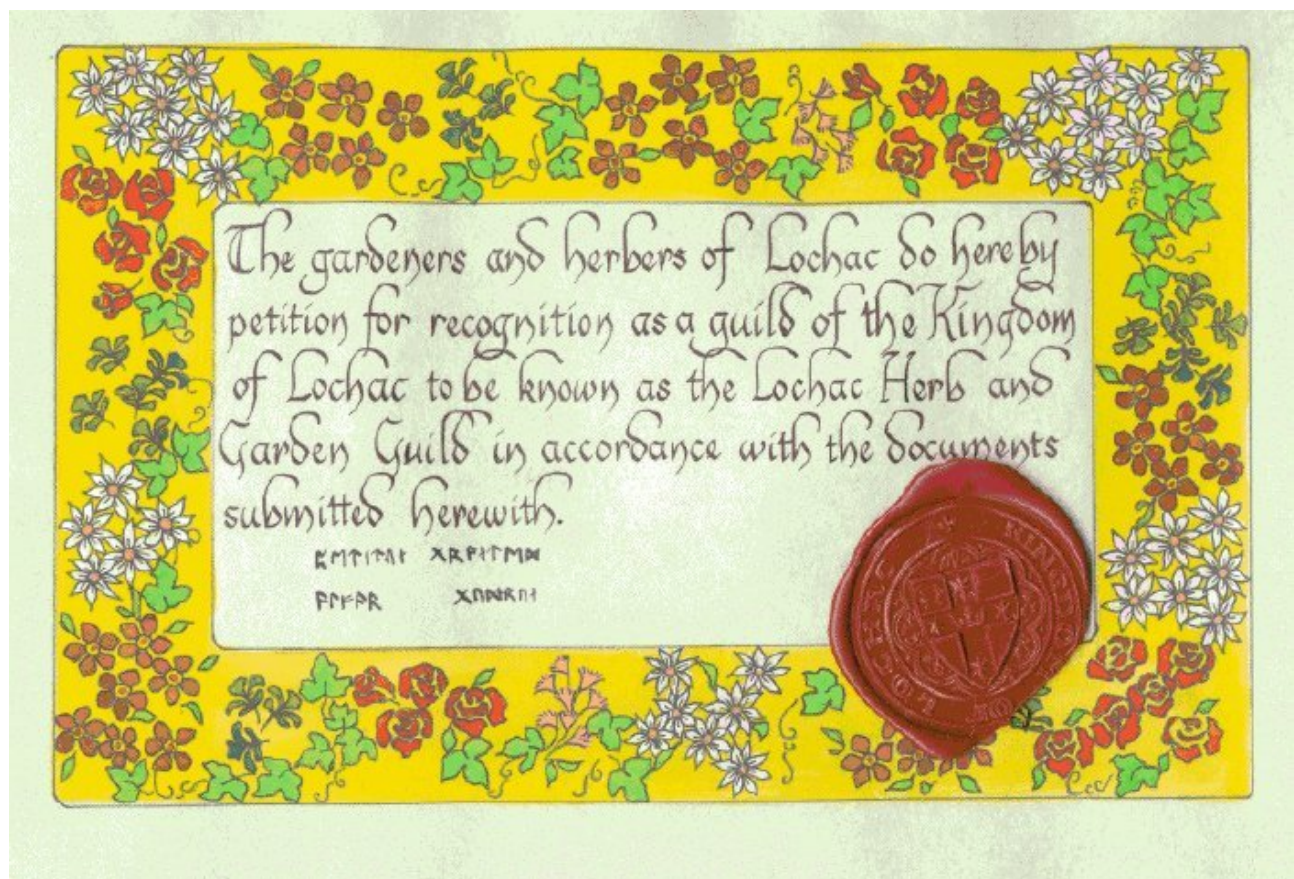 The gardeners and herbers of Lochac do hereby
petition for recognition as a guild of the Kingdom
of Lochac to be known as the Lochac Herb and
Garden Guild in accordance with the documents
submitted herewith.
ᚷᚱᚨᚾᛏᛖᛞ